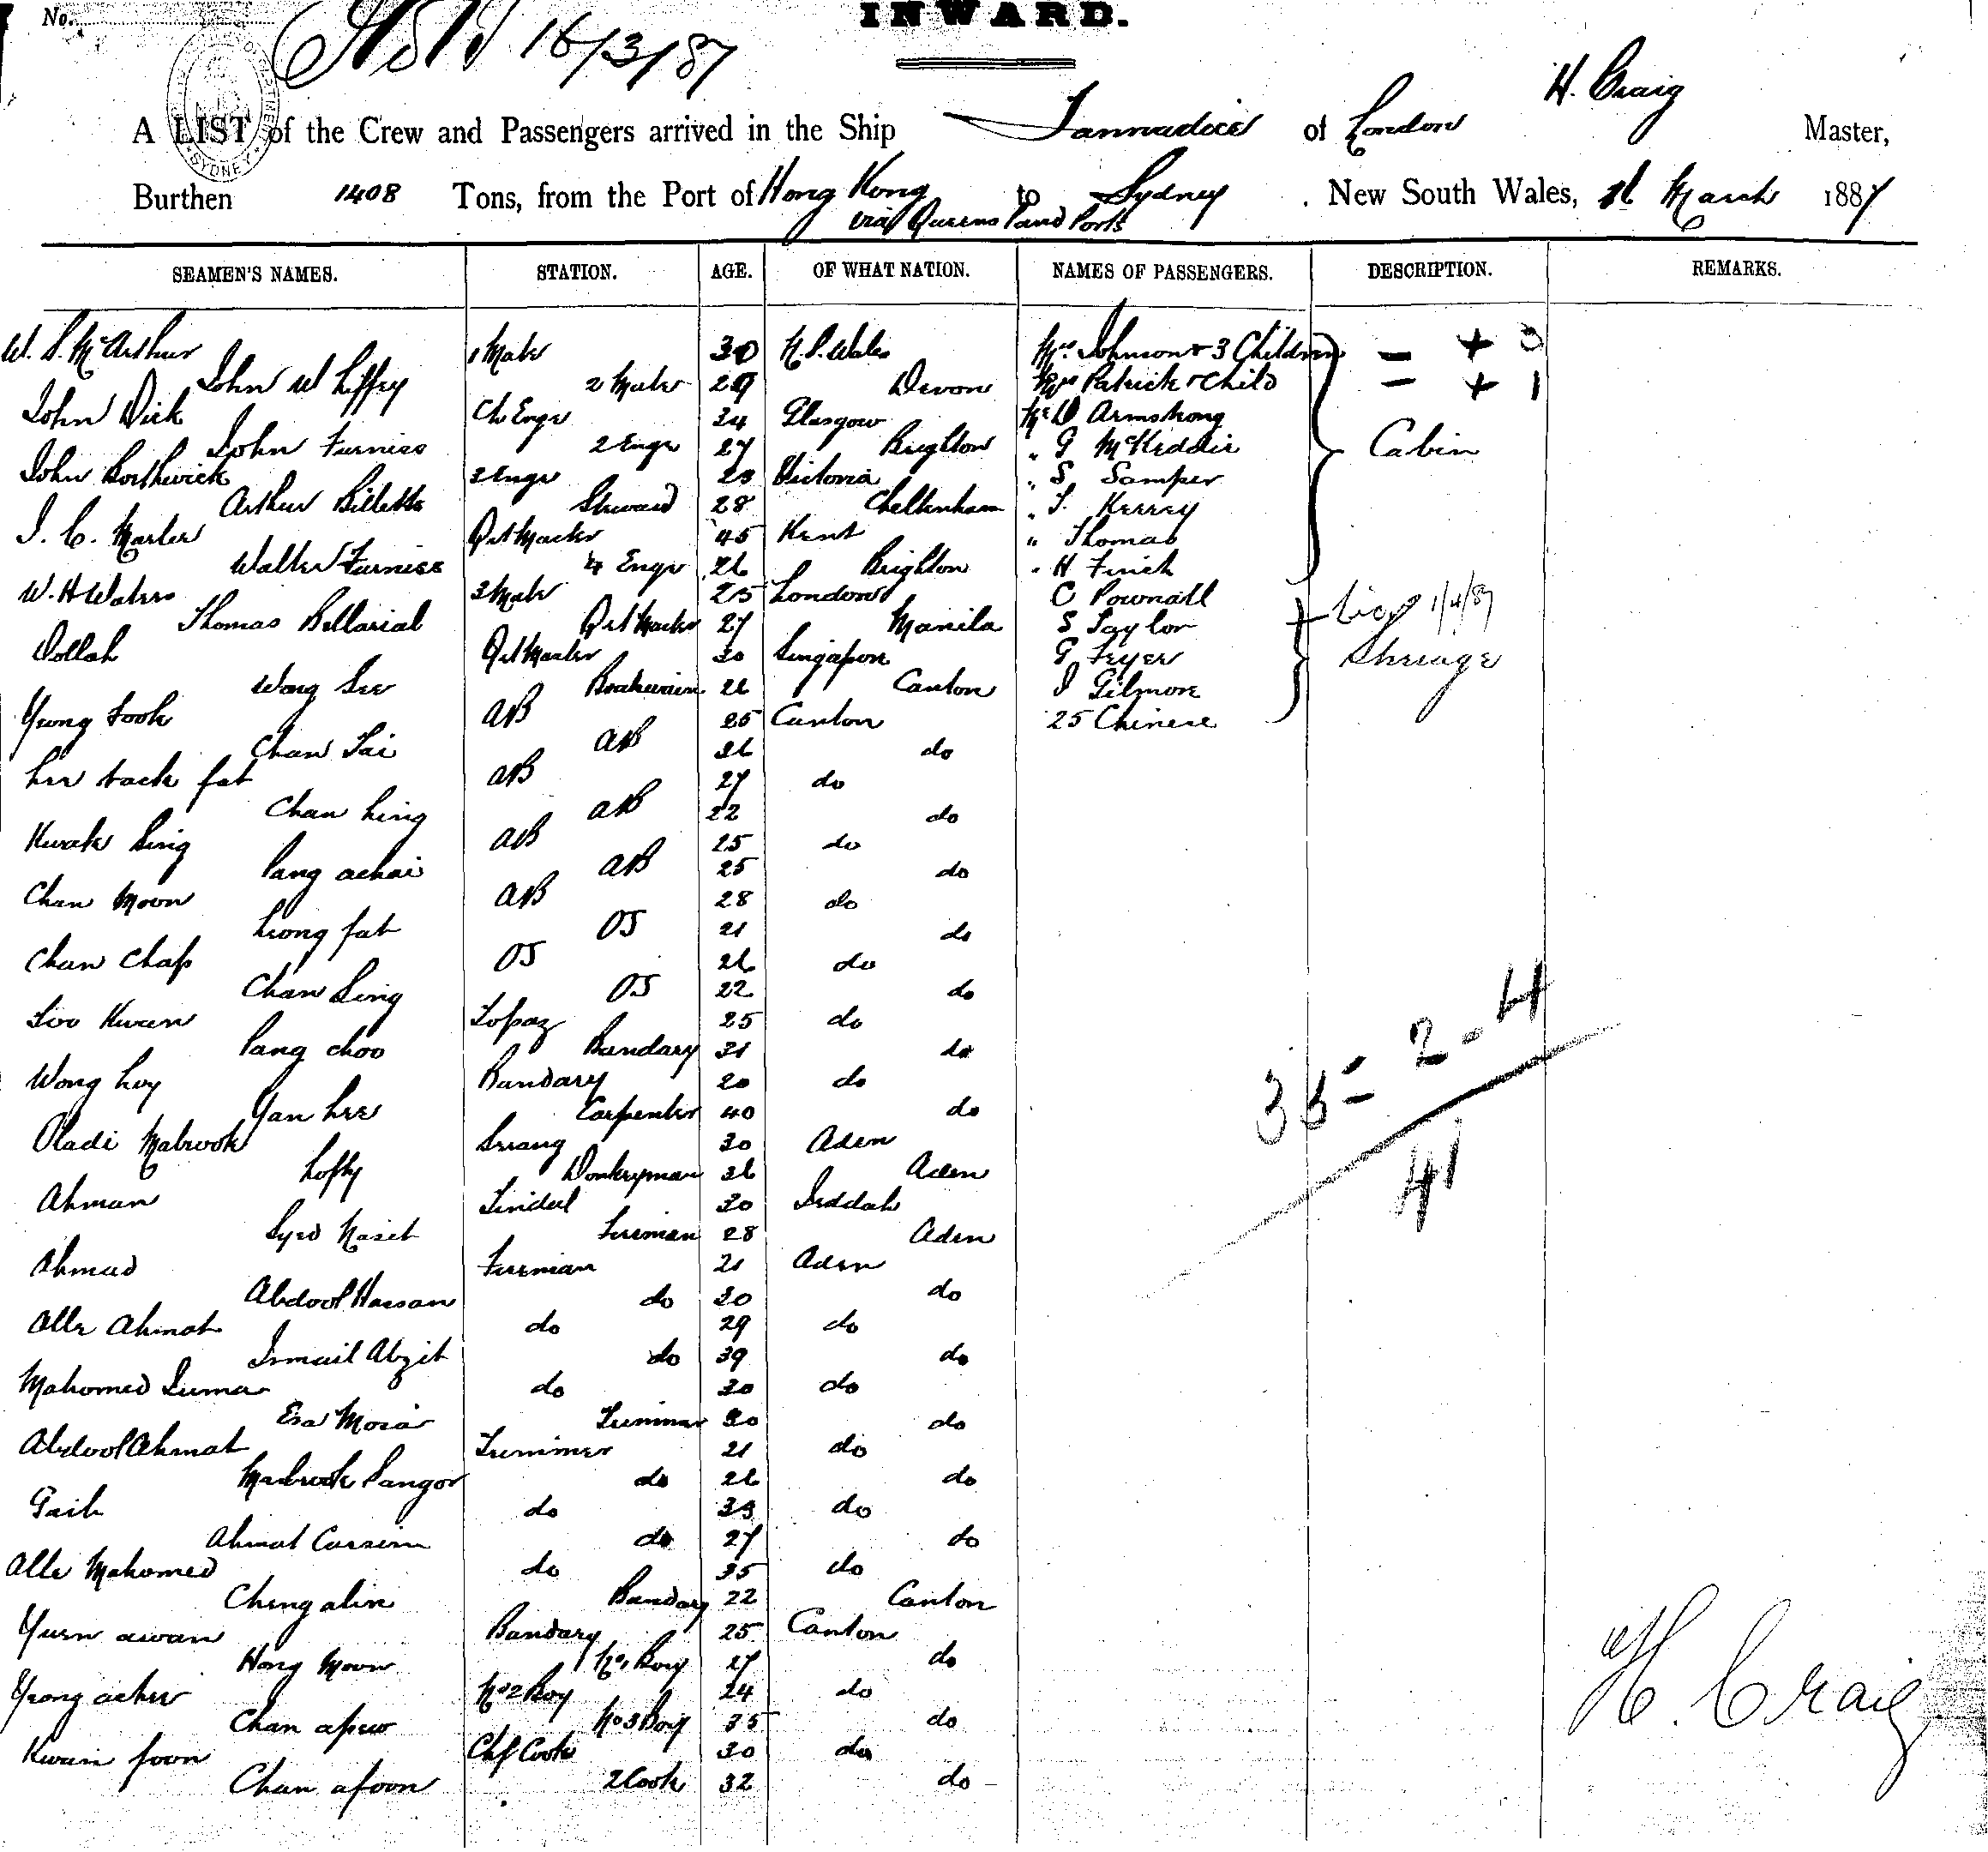 No.
INWARD.
16/3/87
H. Craig
A LIST of the Crew and Passengers arrived in the Ship Tannadice of London Master,
Burthen 1408 Tons, from the Port of Hong Kong to Sydney. New South Wales, March 1887
via Queensland Ports
SEAMEN'S NAMES. STATION. AGE. OF WHAT NATION. NAMES OF PASSENGERS. DESCRIPTION. REMARKS.
W. S. McArthur 1 Mate 30 N. S. Wales Mrs Johnson & 3 Children — + 3
John W Liffey 2 Mate 29 Devon Mrs Patrick & Child — + 1
John Dick Ch Engr 34 Glasgow Mr D Armstrong
John Furniss 2 Engr 27 Brighton " G McKeddie Cabin
John Borthwick 3 Engr 23 Victoria " S Samper
Arthur Billetts Steward 28 Cheltenham " T. Kersey
J. C. Marler Qrt Master 45 Kent " Thomas
Walter Furniss 4 Engr 26 Brighton " H Finch
W. H Waters 3 Mate 25 London C Pownall
Thomas Qrt Master 27 Manila S Taylor 1/4/87
Dollah Qrt Master 30 Singapore G Fryer Steerage
Wong See 26 Canton J Gilmore
Yeong Fook AB 25 Canton 25 Chinese
Chan Tai AB 26 do
Lee tack fat AB 27 do
Chan King AB 22 do
Kwok Sing AB 25 do
Pang achai AB 25 do
Chan Moon AB 28 do
Leong fat OS 21 do
Chan Chap OS 26 do
Chan Sing OS 22 do
Soo Kwan Topaz 25 do
Pang choo Bandary 31 do
Wong hoy Bandary 20 do
Yan Lee Carpenter 40 do
Oladi Mabrook Serang 30 Aden
Lofty Donkeyman 36 Aden
Ahman Tindal 30 Jeddah
Syed Naseb Fireman 28 Aden
Ahmad Fireman 21 Aden
Abdool Hassan do 30 do
Alle Ahmat do 29 do
Ismail Abzib do 39 do
Mahomed Juma do 30 do
Esa Mosa Trimmer 30 do
Abdool Ahmat Trimmer 21 do
Mabrook Sangor do 26 do
Gaib do 33 do
Ahmat Cassim do 27 do
Alle Mahomed do 35 do
Cheng alin Bandary 22 Canton
Yuen awan Bandary 25 Canton
Hong Moon No 1 Boy 27 do
Yeong achee No 2 Boy 24 do
Chan apew No 3 Boy 35 do
Kwan foon Chf Cook 30 do
Chan afoon 2 Cook 32 do
35 = 2 - 4
41
H. Craig